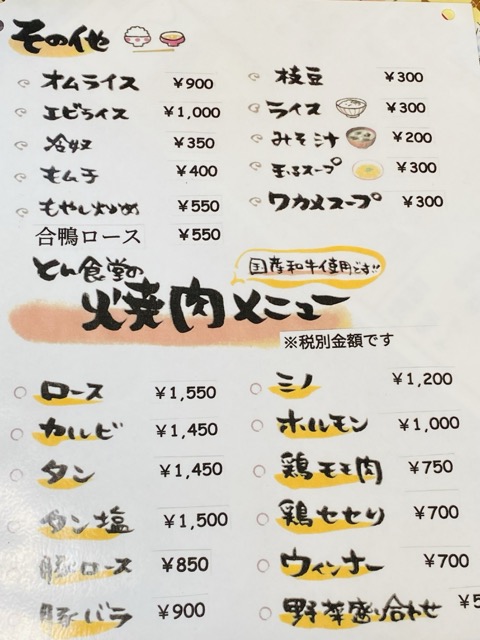 その他
オムライス ¥900
エビライス ¥1,000
冷奴 ¥350
キムチ ¥400
もやし炒め ¥550
合鴨ロース ¥550
枝豆 ¥300
ライス ¥300
みそ汁 ¥200
玉子スープ ¥300
ワカメスープ ¥300
とん食堂の
焼肉メニュー
国産和牛使用です!!
※税別金額です
ロース ¥1,550
カルビ ¥1,450
タン ¥1,450
タン塩 ¥1,500
豚ロース ¥850
豚バラ ¥900
ミノ ¥1,200
ホルモン ¥1,000
鶏モモ肉 ¥750
鶏セセリ ¥700
ウィンナー ¥700
野菜盛り合わせ ¥5